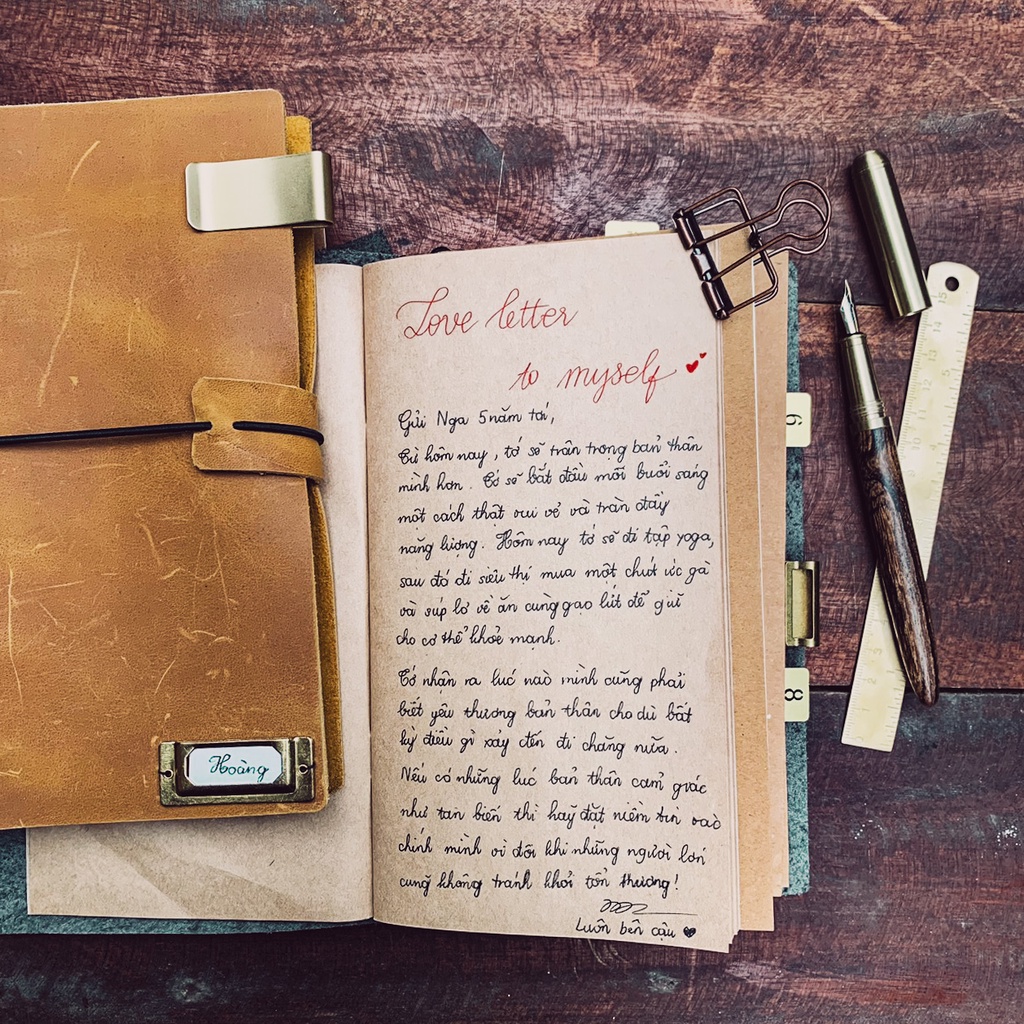 Love letter
to myself
Gửi Nga 5 năm tới,
Từ hôm nay, tớ sẽ trân trọng bản thân
mình hơn. Tớ sẽ bắt đầu mỗi buổi sáng
một cách thật vui vẻ và tràn đầy
năng lượng. Hôm nay tớ sẽ đi tập yoga,
sau đó đi siêu thị mua một chút ức gà
và súp lơ về ăn cùng gạo lứt để giữ
cho cơ thể khoẻ mạnh.
Tớ nhận ra lúc nào mình cũng phải
biết yêu thương bản thân cho dù bất
kỳ điều gì xảy đến đi chăng nữa.
Nếu có những lúc bản thân cảm giác
như tan biến thì hãy đặt niềm tin vào
chính mình vì đôi khi những người lớn
cũng không tránh khỏi tổn thương!
Luôn bên cậu
Hoàng
6
8
15
14
13
12
11